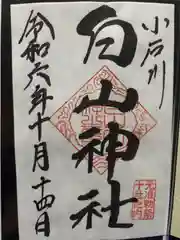 小石川
白山神社
令和六年十月十四日